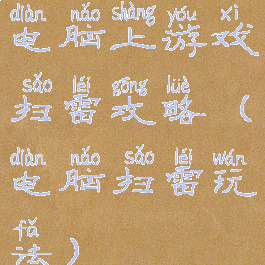 diàn nǎo shàng yóu xì
电脑上游戏
sǎo léi gōng lüè
扫雷攻略（
diàn nǎo sǎo léi wán
电脑扫雷玩
fǎ
法）